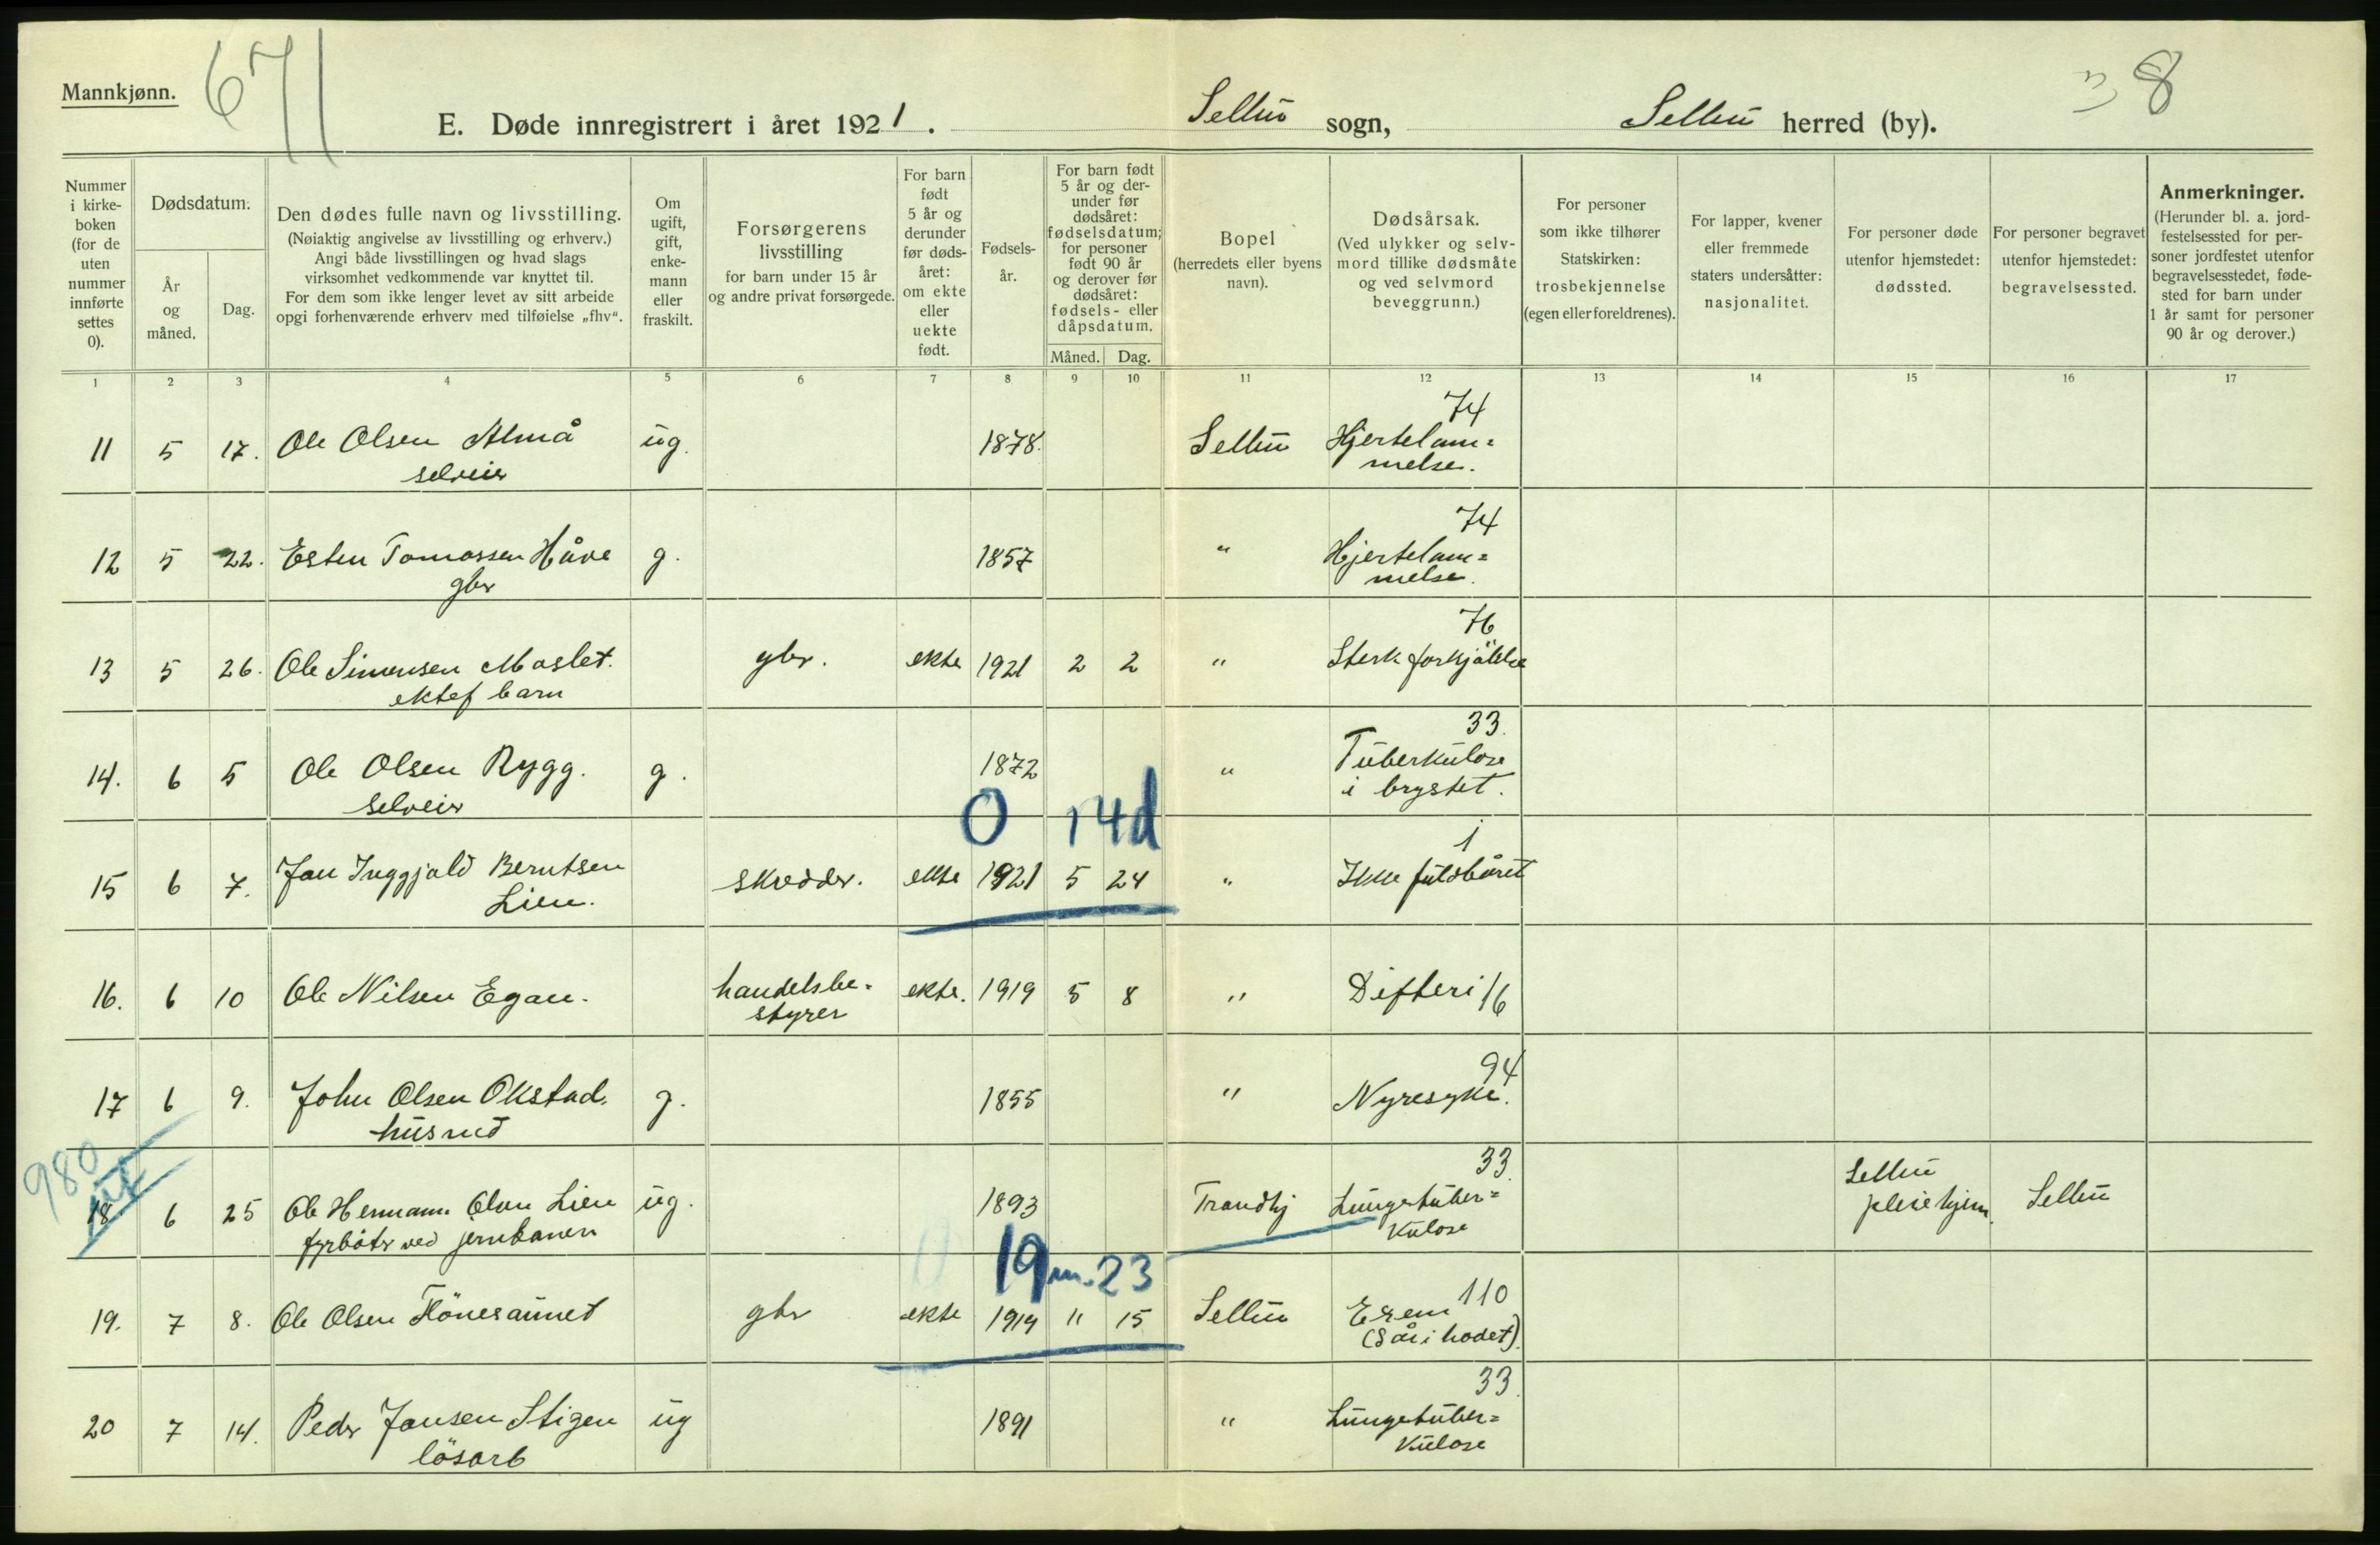 Mannkjønn.
671
E. Døde innregistrert i året 1921. Selbu sogn, Selbu herred (by).
8
Nummer i kirkeboken (for de uten nummer innførte settes 0).
Dødsdatum:
År og måned.
Dag.
Den dødes fulle navn og livsstilling.
(Nøiaktig angivelse av livsstilling og erhverv.)
Angi både livsstillingen og hvad slags
virksomhet vedkommende var knyttet til.
For dem som ikke lenger levet av sitt arbeide
opgi forhenværende erhverv med tilføielse „fhv“.
Om ugift, gift, enkemann eller fraskilt.
Forsørgerens livsstilling
for barn under 15 år
og andre privat forsørgede.
For barn født 5 år og derunder før dødsåret: om ekte eller uekte født.
Fødselsår.
For barn født 5 år og derunder før dødsåret: fødselsdatum; for personer født 90 år og derover før dødsåret: fødsels- eller dåpsdatum.
Måned. Dag.
Bopel
(herredets eller byens navn).
Dødsårsak.
(Ved ulykker og selvmord tillike dødsmåte og ved selvmord beveggrunn.)
For personer som ikke tilhører Statskirken: trosbekjennelse (egen eller foreldrenes).
For lapper, kvener eller fremmede staters undersåtter: nasjonalitet.
For personer døde utenfor hjemstedet: dødssted.
For personer begravet utenfor hjemstedet: begravelsessted.
Anmerkninger.
(Herunder bl. a. jordfestelsessted for personer jordfestet utenfor begravelsesstedet, fødested for barn under 1 år samt for personer 90 år og derover.)
1 2 3 4 5 6 7 8 9 10 11 12 13 14 15 16 17
74
11 5 17. Ole Olsen Almå ug. 1878. Selbu Hjertelam=
selveier melse.
74
12 5 22. Esten Tomassen Håve g. 1857 " Hjertelam=
gbr melse.
76
13 5 26. Ole Simonsen Moslet. gbr. ekte 1921 2 2 " Sterk forkjölelse
ektef barn
33.
14. 6 5 Ole Olsen Rygg. g. 1872 " Tuberkulose
selveier i brystet.
0 14d
1
15 6 7. Jan Inggjald Berntsen skredder. ekte 1921 5 24 " Ikke fuldbåret
Lien.
16. 6 10 Ole Nilsen Egan. handelsbe= ekte. 1919 5 8 " Difteri 16
styrer
94
17 6 9. John Olsen Okstad. g. 1855 " Nyresyke.
husmd
980
33
18. 6 25 Ole Hermann Olsen Lien ug. 1893 Trondhj Lungetuber= Selbu pleiehjem. Selbu
fyrböter ved jernbanen kulose
19 m. 23
110
19. 7 8. Ole Olsen Flönesaunet gbr ekte 1919 11 15 Selbu Exem
(Sår i hodet).
33.
20 7 14. Peder Jansen Stigen ug 1891 " Lungetuber=
lösarb kulose